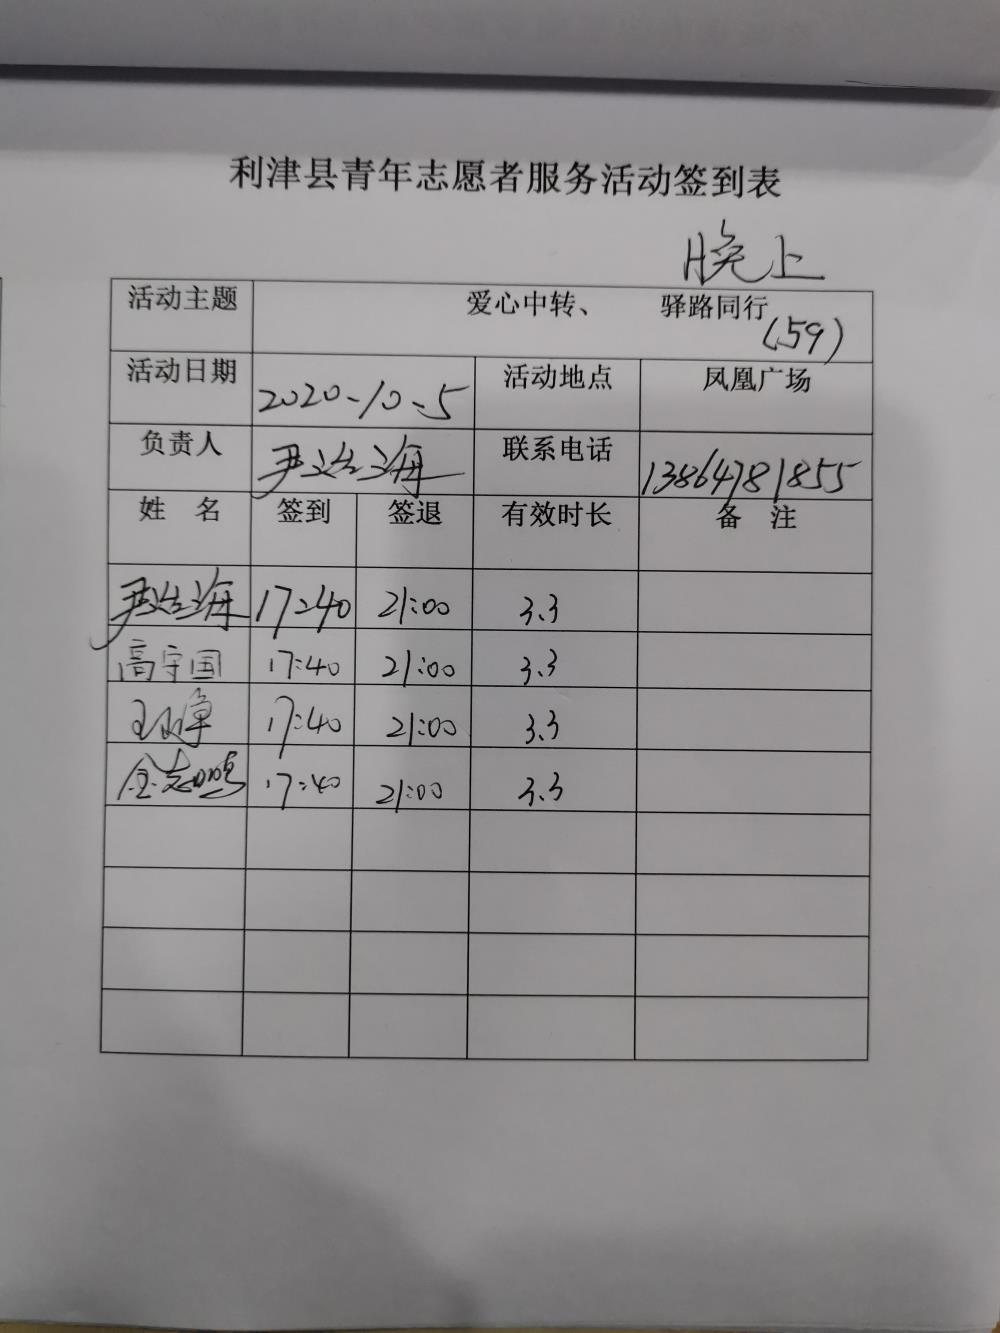 利津县青年志愿者服务活动签到表
晚上
活动主题 爱心中转、 驿路同行 (59)
活动日期 2020-10-5 活动地点 凤凰广场
负责人 尹 海 联系电话 13864781855
姓 名 签到 签退 有效时长 备 注
尹 海 17:40 21:00 3.3
高守国 17:40 21:00 3.3
王 17:40 21:00 3.3
金志鸣 17:40 21:00 3.3